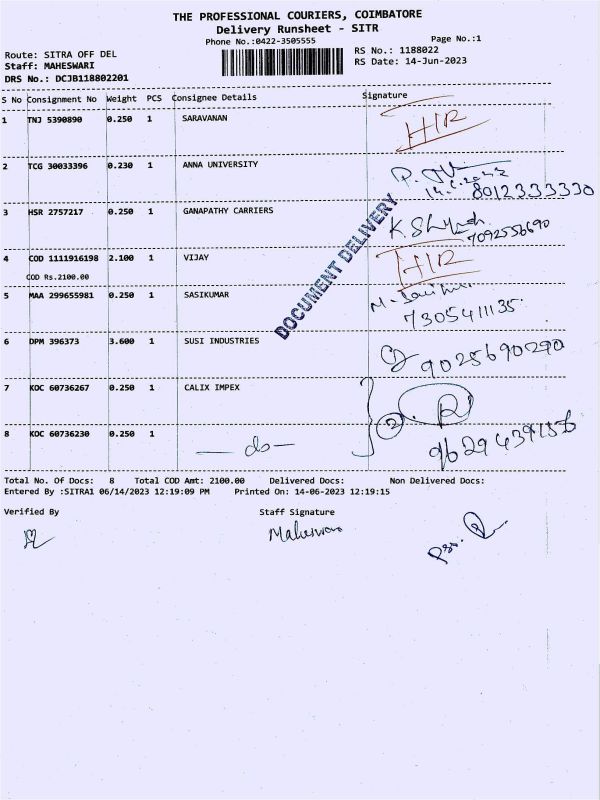 THE PROFESSIONAL COURIERS, COIMBATORE
Delivery Runsheet - SITR
Phone No.:0422-3505555
Page No.:1
Route: SITRA OFF DEL
RS No.: 1188022
Staff: MAHESWARI
RS Date: 14-Jun-2023
DRS No.: DCJB118802201
S No Consignment No Weight PCS Consignee Details Signature
1 TNJ 5390890 0.250 1 SARAVANAN
2 TCG 30033396 0.230 1 ANNA UNIVERSITY
8012333330
3 HSR 2757217 0.250 1 GANAPATHY CARRIERS
7092556690
4 COD 1111916198 2.100 1 VIJAY
COD Rs.2100.00
5 MAA 299655981 0.250 1 SASIKUMAR
7305411135
DOCUMENT DELIVERY
6 DPM 396373 3.600 1 SUSI INDUSTRIES
9025690290
7 KOC 60736267 0.250 1 CALIX IMPEX
2
8 KOC 60736230 0.250 1 — do —
9629439156
Total No. Of Docs: 8 Total COD Amt: 2100.00 Delivered Docs: Non Delivered Docs:
Entered By :SITRA1 06/14/2023 12:19:09 PM Printed On: 14-06-2023 12:19:15
Verified By Staff Signature